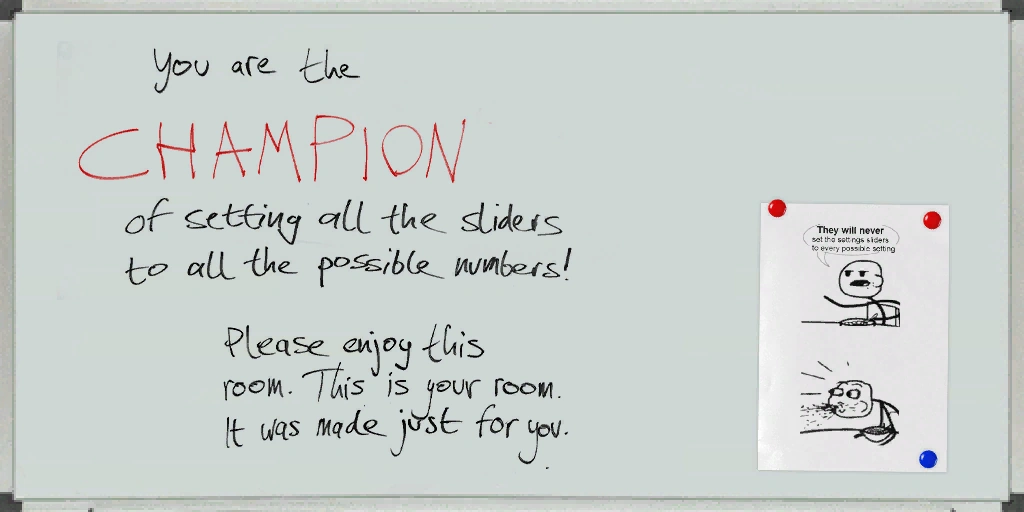 You are the
CHAMPION
of setting all the sliders
to all the possible numbers!
Please enjoy this
room. This is your room.
It was made just for you.
They will never
set the settings sliders
to every possible setting